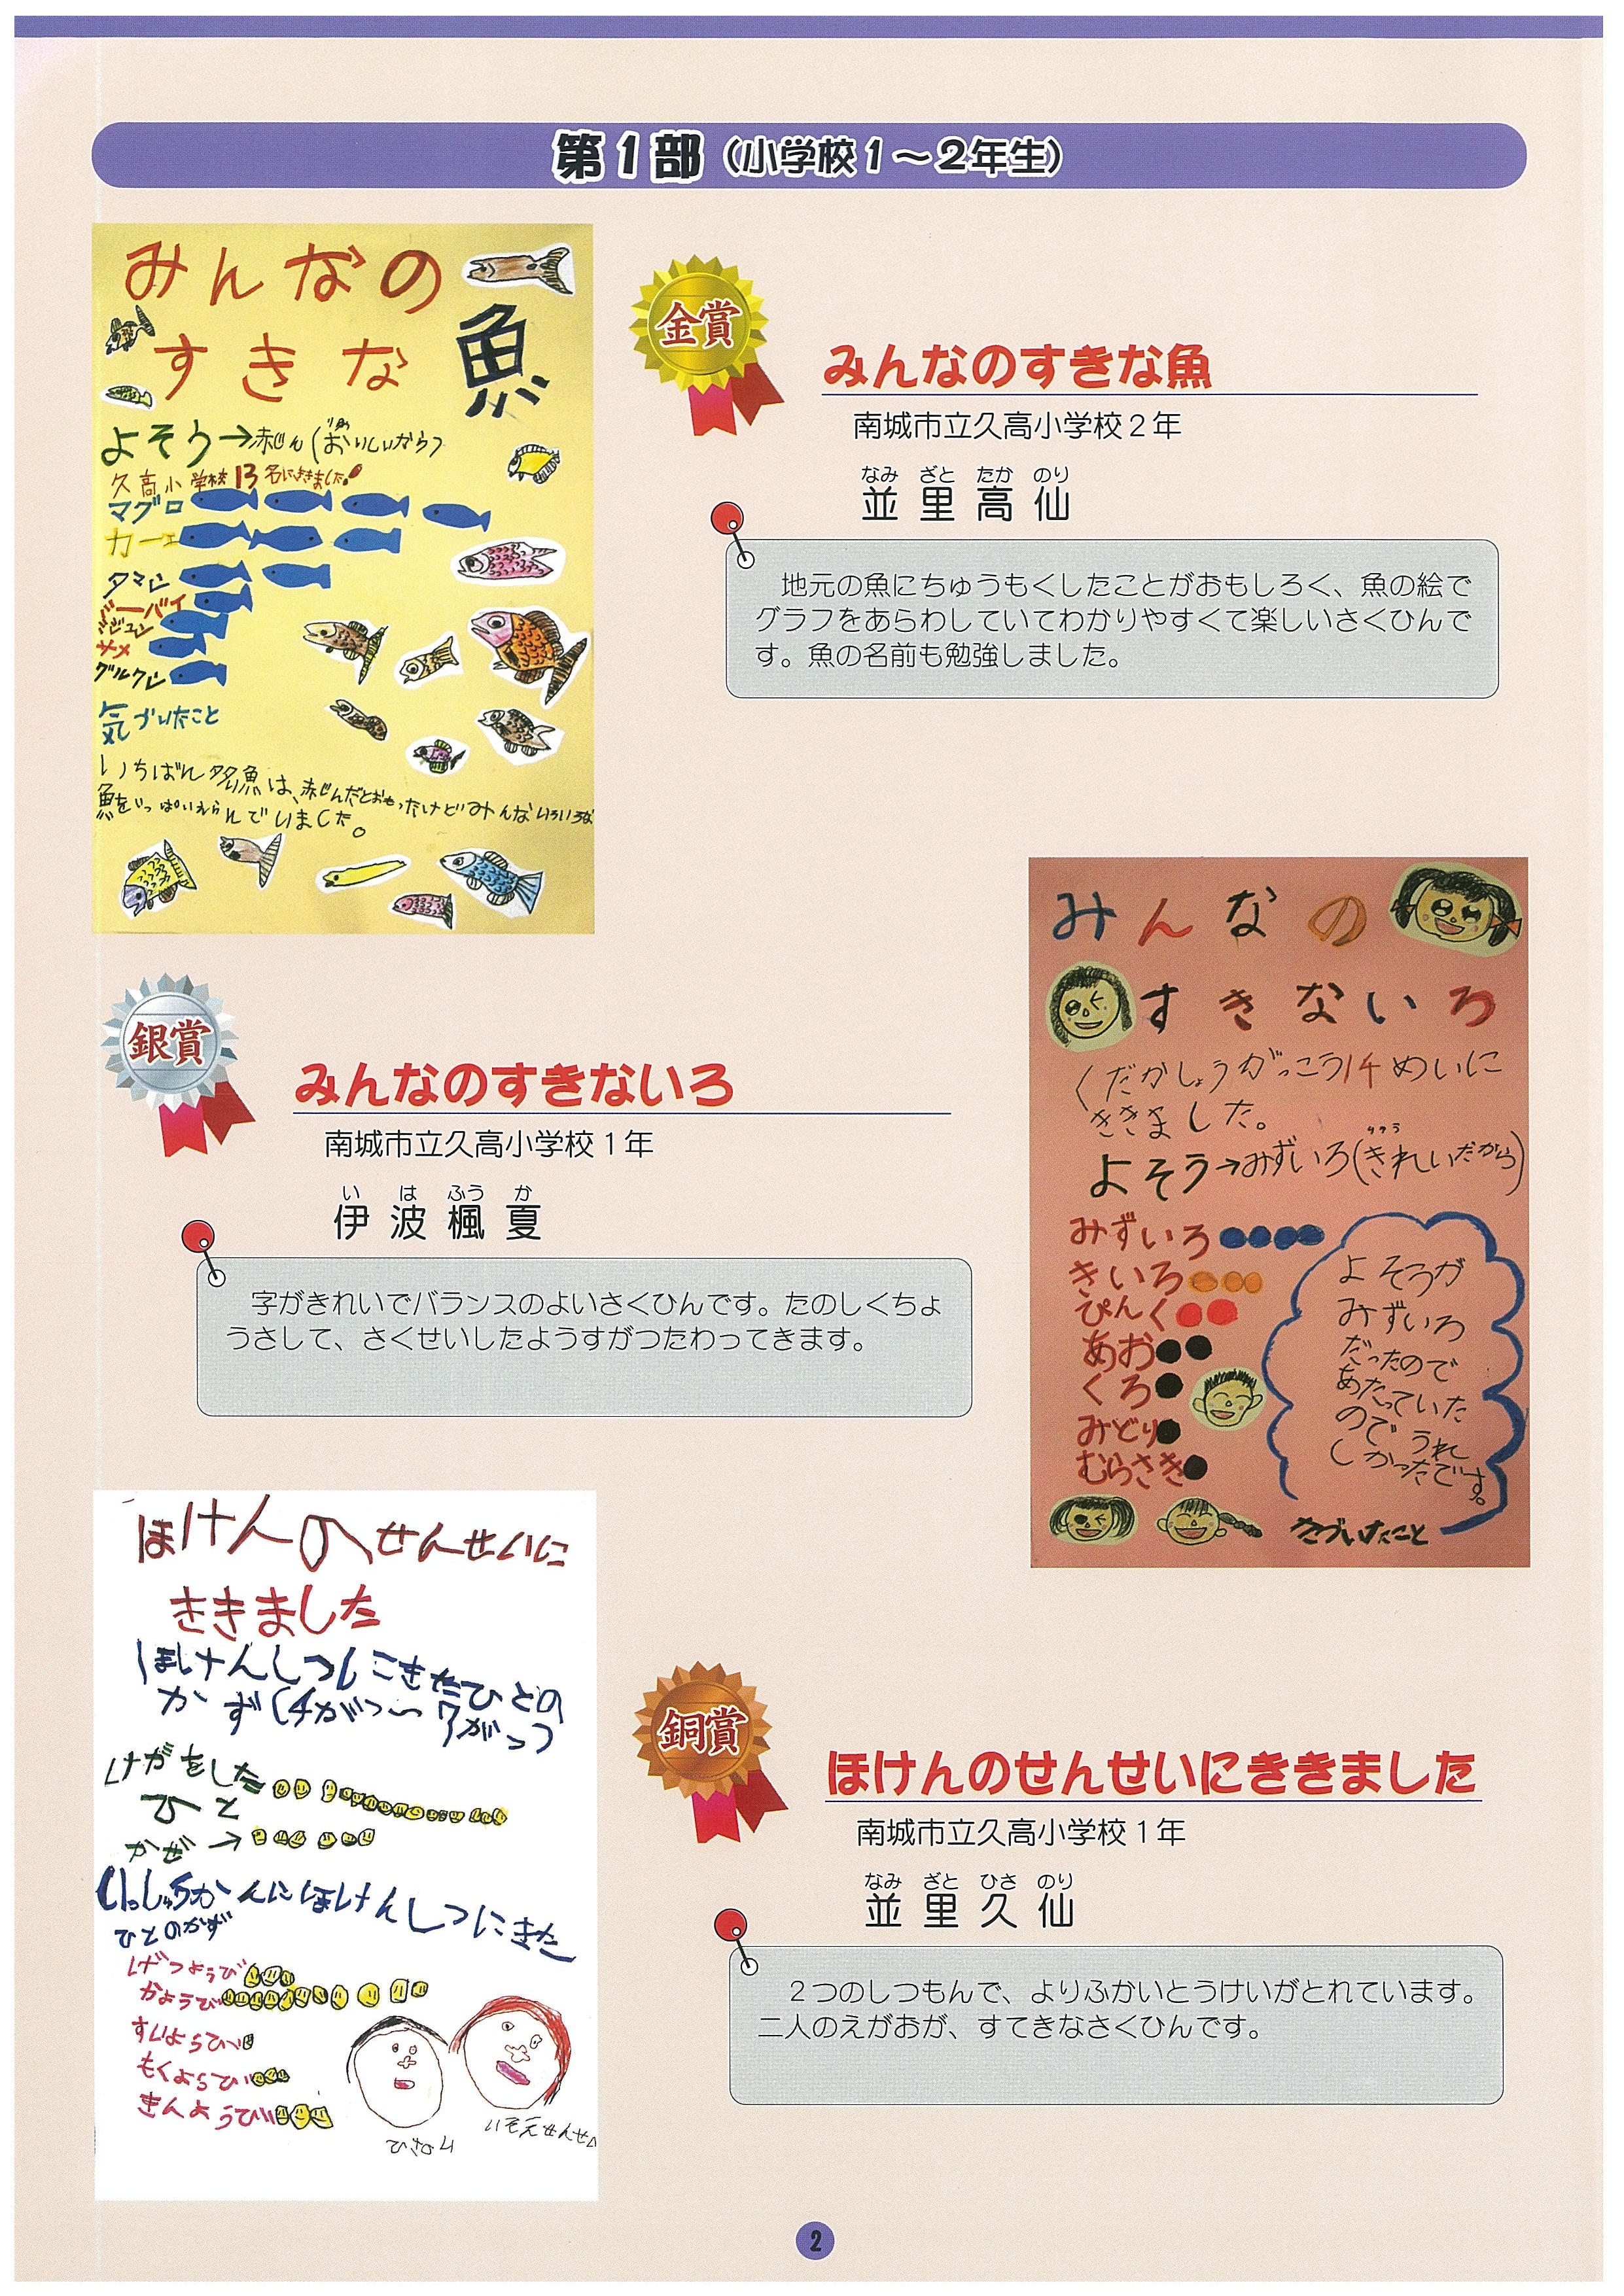 第1部（小学校1～2年生）
みんなの
すきな 魚
よそう→赤じん（おいしいから）
りゆう
久高小学校13名にききました！
マグロ
カーエー
タマン
ミジュン
サメ
グルクン
気づいたこと
いちばん多い魚は、赤じんだとおもったけどみんないろいろな
魚をいっぱいえらんでいました。
金賞
みんなのすきな魚
南城市立久高小学校2年
なみ ざと たか のり
並里高仙
地元の魚にちゅうもくしたことがおもしろく、魚の絵で
グラフをあらわしていてわかりやすくて楽しいさくひんで
す。魚の名前も勉強しました。
銀賞
みんなのすきないろ
南城市立久高小学校1年
い は ふう か
伊波楓夏
字がきれいでバランスのよいさくひんです。たのしくちょ
うさして、さくせいしたようすがつたわってきます。
みんなの
すきないろ
くだかしょうがっこう14めいに
ききました。
りゆう
よそう→みずいろ（きれいだから）
みずいろ
きいろ
ぴんく
あお
くろ
みどり
むらさき
よそうが
みずいろ
だったので
あたっていた
のでうれ
しかったです。
きづいたこと
ほけんのせんせいに
ききました
ほけんしつにきたひとの
かず（4がつ〜7がつ）
けがをした
ひと
かぜ→
いっしゅうかんにほけんしつにきた
ひとのかず
げつようび
かようび
すいようび
もくようび
きんようび
ひさのり
銅賞
ほけんのせんせいにききました
南城市立久高小学校1年
なみ ざと ひさ のり
並里久仙
２つのしつもんで、よりふかいとうけいがとれています。
二人のえがおが、すてきなさくひんです。
2